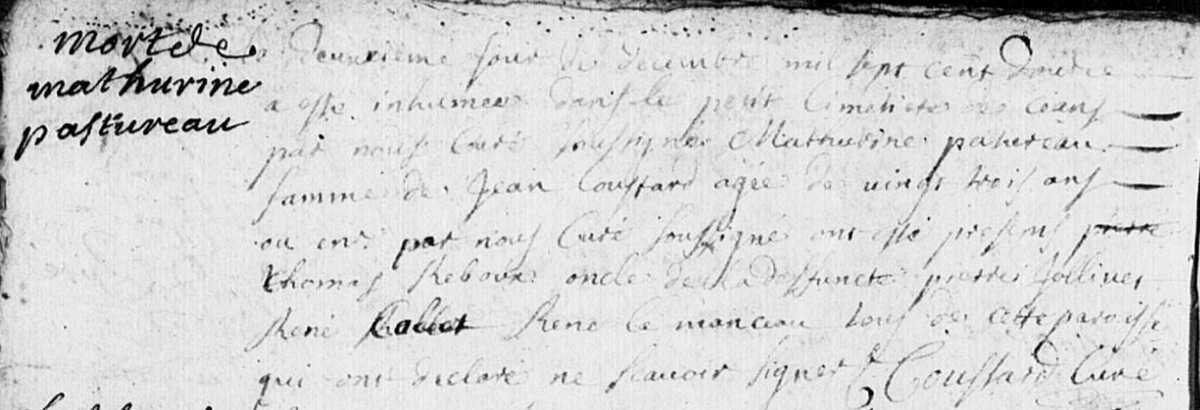 mort de
mathurine
pastureau
deuxieme jour de decembre mil sept cent douze
a esté inhumee dans le petit Cimetiere de ceans
par nous Curé soussigné Mathurine patureau
famme de Jean Coustard agée de vingt trois ans
ou env. par nous Curé soussigné ont esté presens
thomas Reboux oncle de la deffuncte pierre jollivet
René Collet René le monceau tous de cette paroisse
qui ont declaré ne scavoir signer Coustard Curé